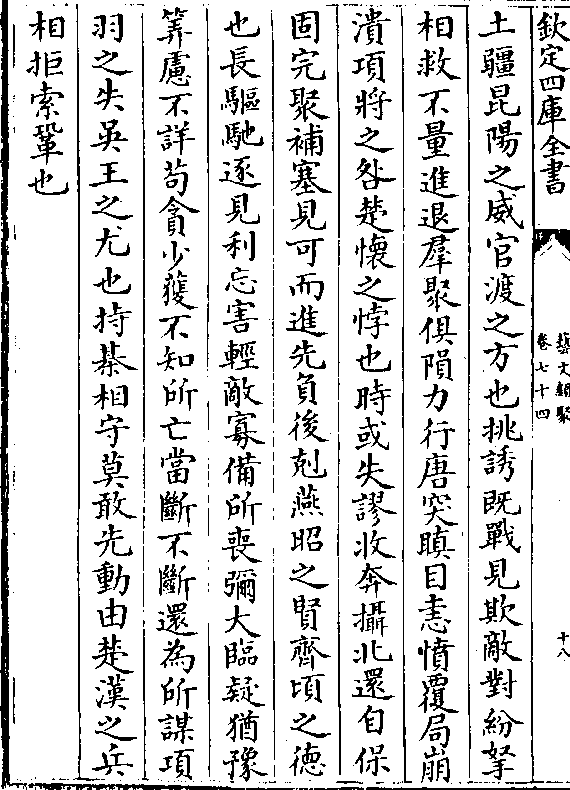 欽定四庫全書
藝文類聚
卷七十四
十八
土疆昆陽之威官渡之方也挑誘既戰見欺敵對紛拏
相救不量進退羣聚俱隕力行唐突瞋目恚憤覆局崩
潰項將之咎楚懷之悖也時或失謬收奔攝北還自保
固完聚補塞見可而進先負後剋燕昭之賢齊頃之德
也長驅馳逐見利忘害輕敵寡備所喪彌大臨疑猶豫
筭慮不詳苟貪少獲不知所亡當斷不斷還為所謀項
羽之失吳王之尤也持棊相守莫敢先動由楚漢之兵
相拒索鞏也